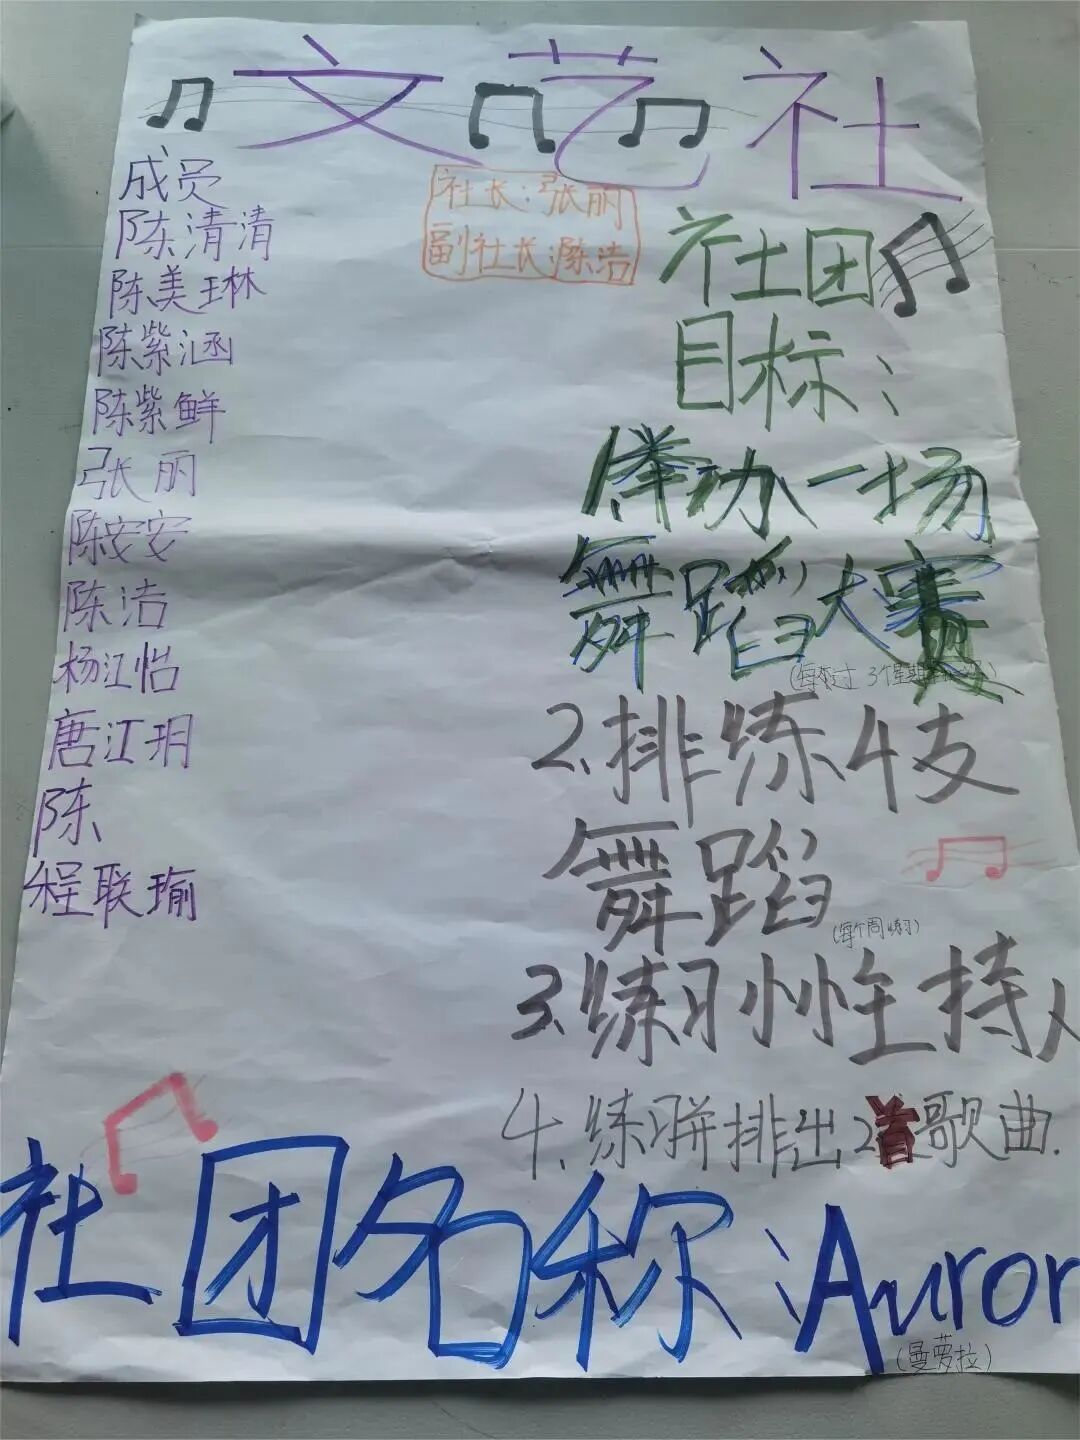 文艺社
社长:张丽
副社长:陈浩
成员
陈清清
陈美琳
陈紫涵
陈紫鲜
张丽
陈安安
陈洁
杨江怡
唐江玥
陈
程联瑜
社团
目标:
举办一场
舞蹈大赛
3个星期
2.排练4支
舞蹈
(每个周练习)
3.练习小主持人
4.练习并排出2首歌曲.
社团名称:Auror
(曼萝拉)